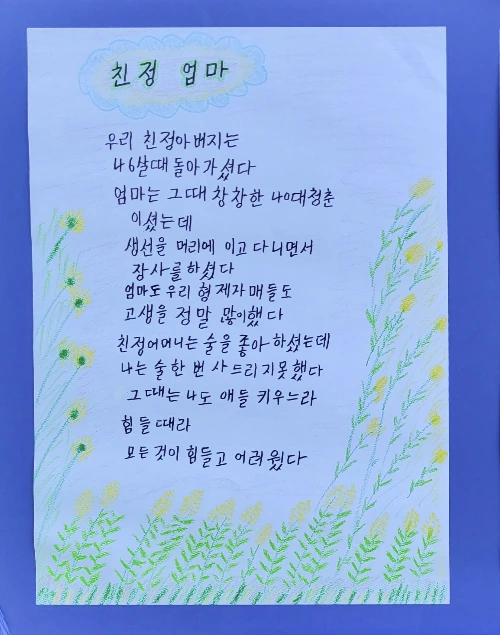 친정 엄마
우리 친정아버지는
나 6살때 돌아가셨다
엄마는 그때 창창한 나이대청춘
이셨는데
생선을 머리에 이고 다니면서
장사를하셨다
엄마도 우리 형제자매들도
고생을 정말 많이했다
친정어머니는 술을 좋아하셨는데
나는 술한번 사드리지못했다
그때는 나도 애들 키우느라
힘들때라
모든것이 힘들고 어려웠다